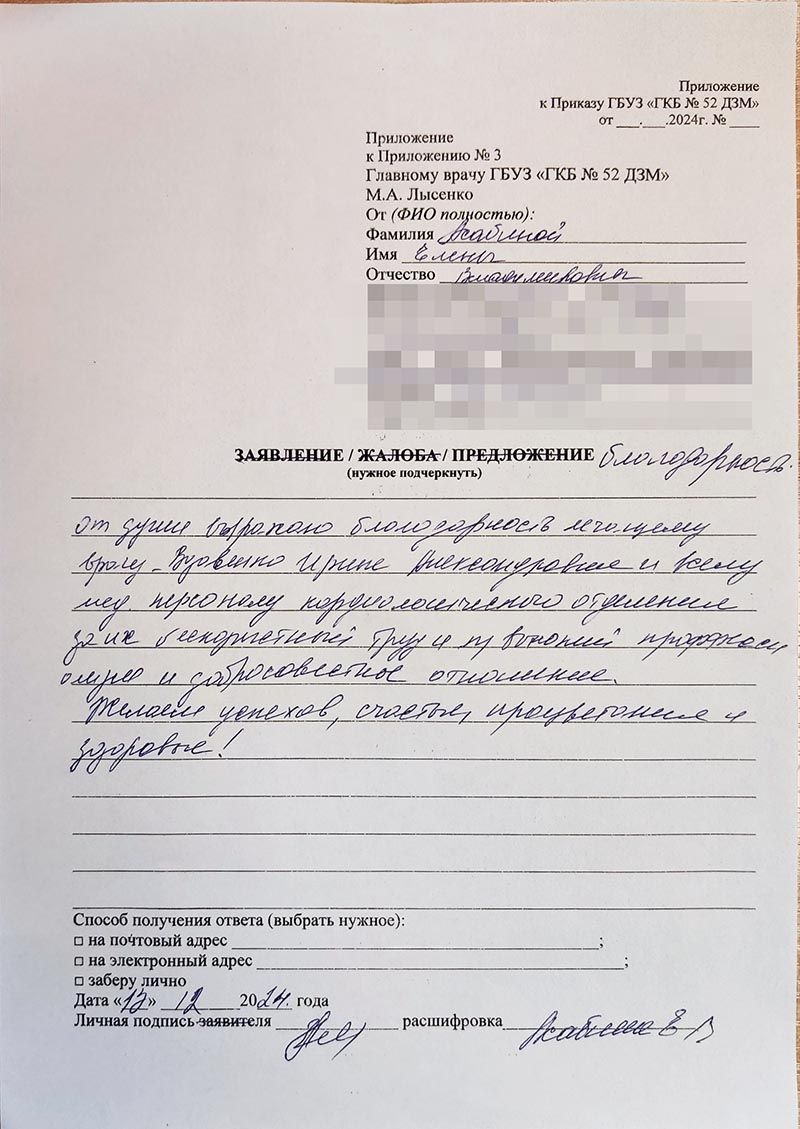 Приложение
к Приказу ГБУЗ «ГКБ № 52 ДЗМ»
от ___.___.2024г. № ____
Приложение
к Приложению № 3
Главному врачу ГБУЗ «ГКБ № 52 ДЗМ»
М.А. Лысенко
От (ФИО полностью):
Фамилия
Имя Елены
Отчество Владимировны
ЗАЯВЛЕНИЕ / ЖАЛОБА / ПРЕДЛОЖЕНИЕ благодарность
(нужное подчеркнуть)
От души выражаю благодарность лечащему
врачу Ирине Александровне и всему
мед. персоналу кардиологического отделения
за их труд и
и добросовестное отношение.
Желаем успехов, счастья, процветания и
здоровья!
Способ получения ответа (выбрать нужное):
□ на почтовый адрес ;
□ на электронный адрес ;
□ заберу лично
Дата «13» 12 2024. года
Личная подпись заявителя расшифровка Е В